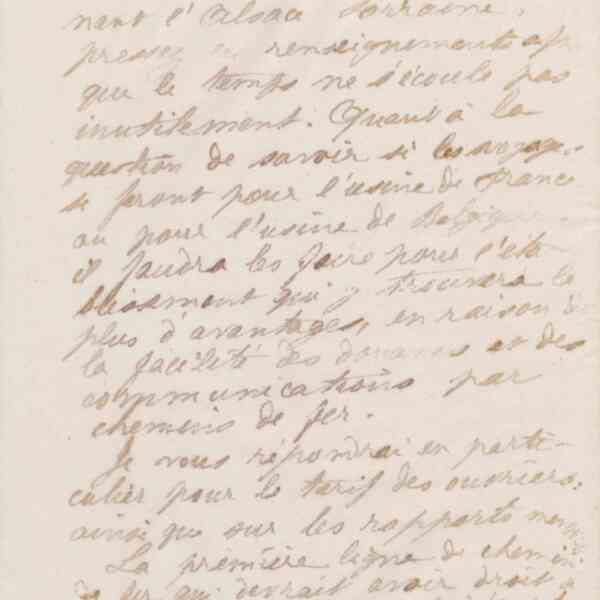 nant l'Alsace Lorraine,
pressez en renseignements afin
que le temps ne s'écoule pas
inutilement. Quant à la
question de savoir si les voyages
se feront pour l'usine de France
ou pour l'usine de Belgique
il faudra les faire pour l'éta-
blissement qui y trouvera le
plus d'avantages, en raison de
la facilité des douanes et des
communications par
chemins de fer.
Je vous répondrai en parti-
culier pour le tarif des ouvriers,
ainsi que sur les rapports
La première ligne de chemin
de fer qui devrait avoir droit à